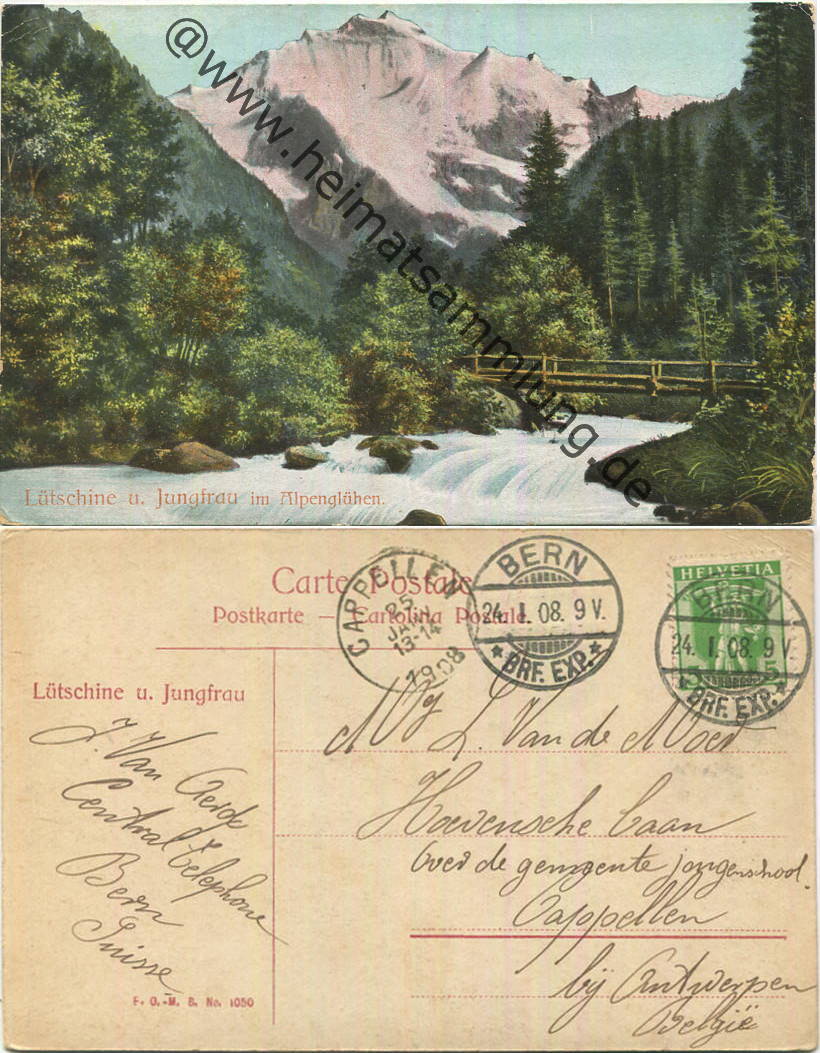 @www.heimatsammlung.de
Lütschine u. Jungfrau im Alpenglühen.
Carte Postale
Postkarte — Cartolina Postale
CAPPELLEN
25
JANV
13-14
1908
BERN
24. I. 08. 9 V.
BRF. EXP.
HELVETIA
5 5
BERN
24. I. 08. 9 V.
BRF. EXP.
Lütschine u. Jungfrau
J. Van
Central Telephone
Bern
Suisse
L. Van de Moer
Hoevensche baan
Over de gemeente jongenschool.
Cappellen
bij Antwerpen
België
F. O.-M. B. No. 1050